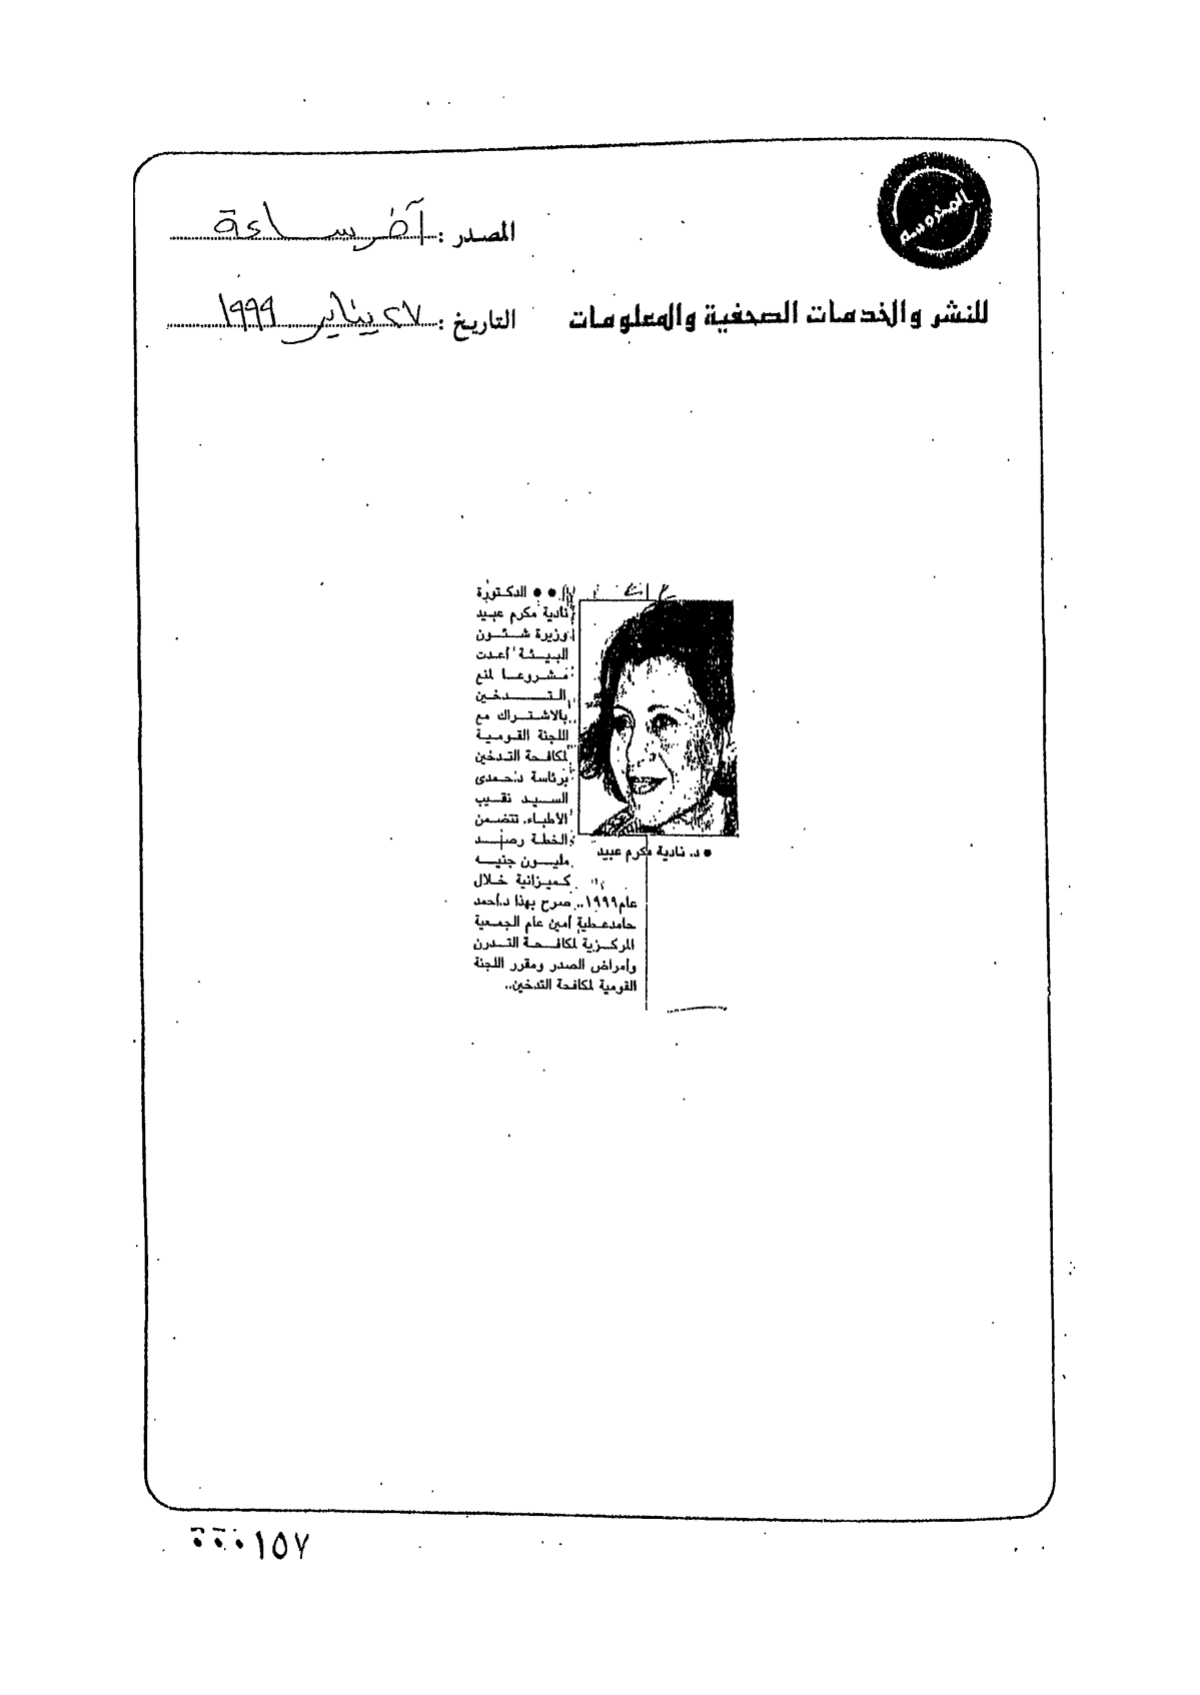 المحروسة
المصدر : آخر ساعة
للنشر والخدمات الصحفية والمعلومات
التاريخ : ٢٧ يناير ١٩٩٩
●● الدكتورة
نادية مكرم عبيد
وزيرة شئون
البيئة أعدت
مشروعا لمنع
التدخين
بالاشتراك مع
اللجنة القومية
لمكافحة التدخين
برئاسة د.حمدى
السيد نقيب
الأطباء. تتضمن
الخطة رصد
مليون جنيه
كميزانية خلال
عام ١٩٩٩.. صرح بهذا د.أحمد
حامد عطية أمين عام الجمعية
المركزية لمكافحة التدرن
وأمراض الصدر ومقرر اللجنة
القومية لمكافحة التدخين..
● د. نادية مكرم عبيد
٠٠٠١٥٧